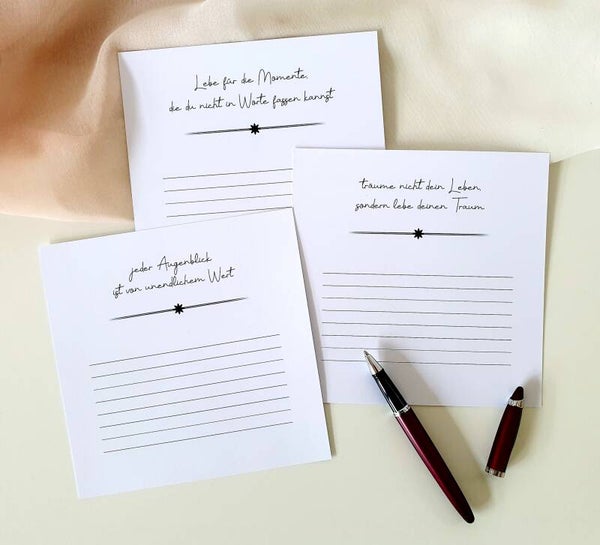 Lebe für die Momente,
die du nicht in Worte fassen kannst
träume nicht dein Leben,
sondern lebe deinen Traum
jeder Augenblick
ist von unendlichem Wert